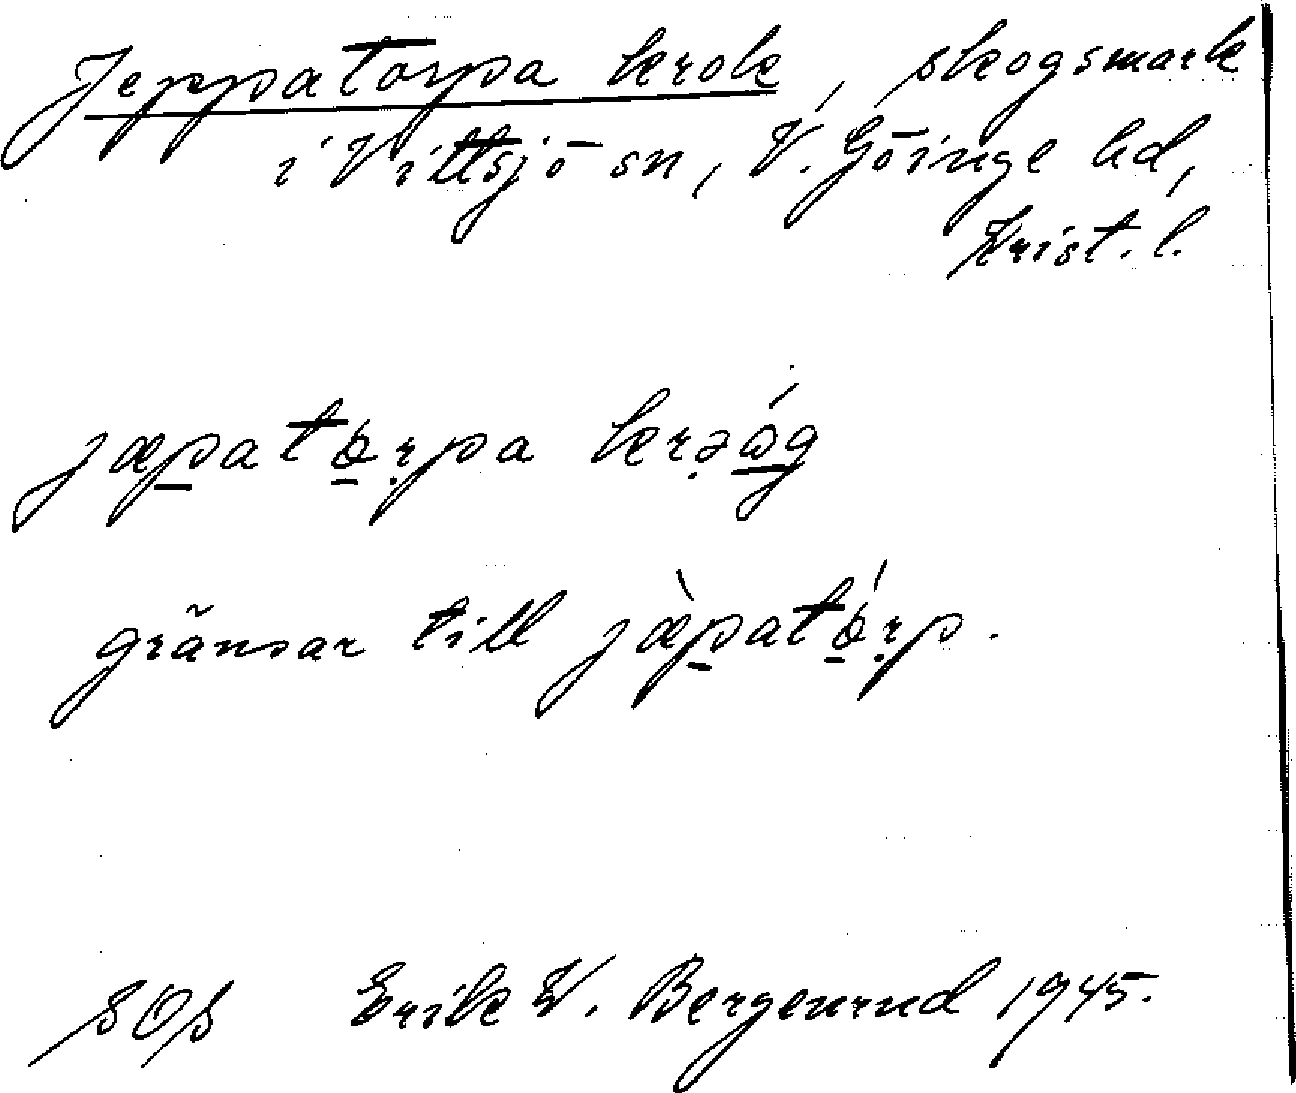 Jeppatorpa krok, skogsmark
i Vittsjö sn, V. Göinge hd,
Krist. l.
jæpatɵ̠r̩pa krəɷ́g
gränsar till jæ̀patɵ́r̩p.
SOS Erik W. Bergenrud 1945.